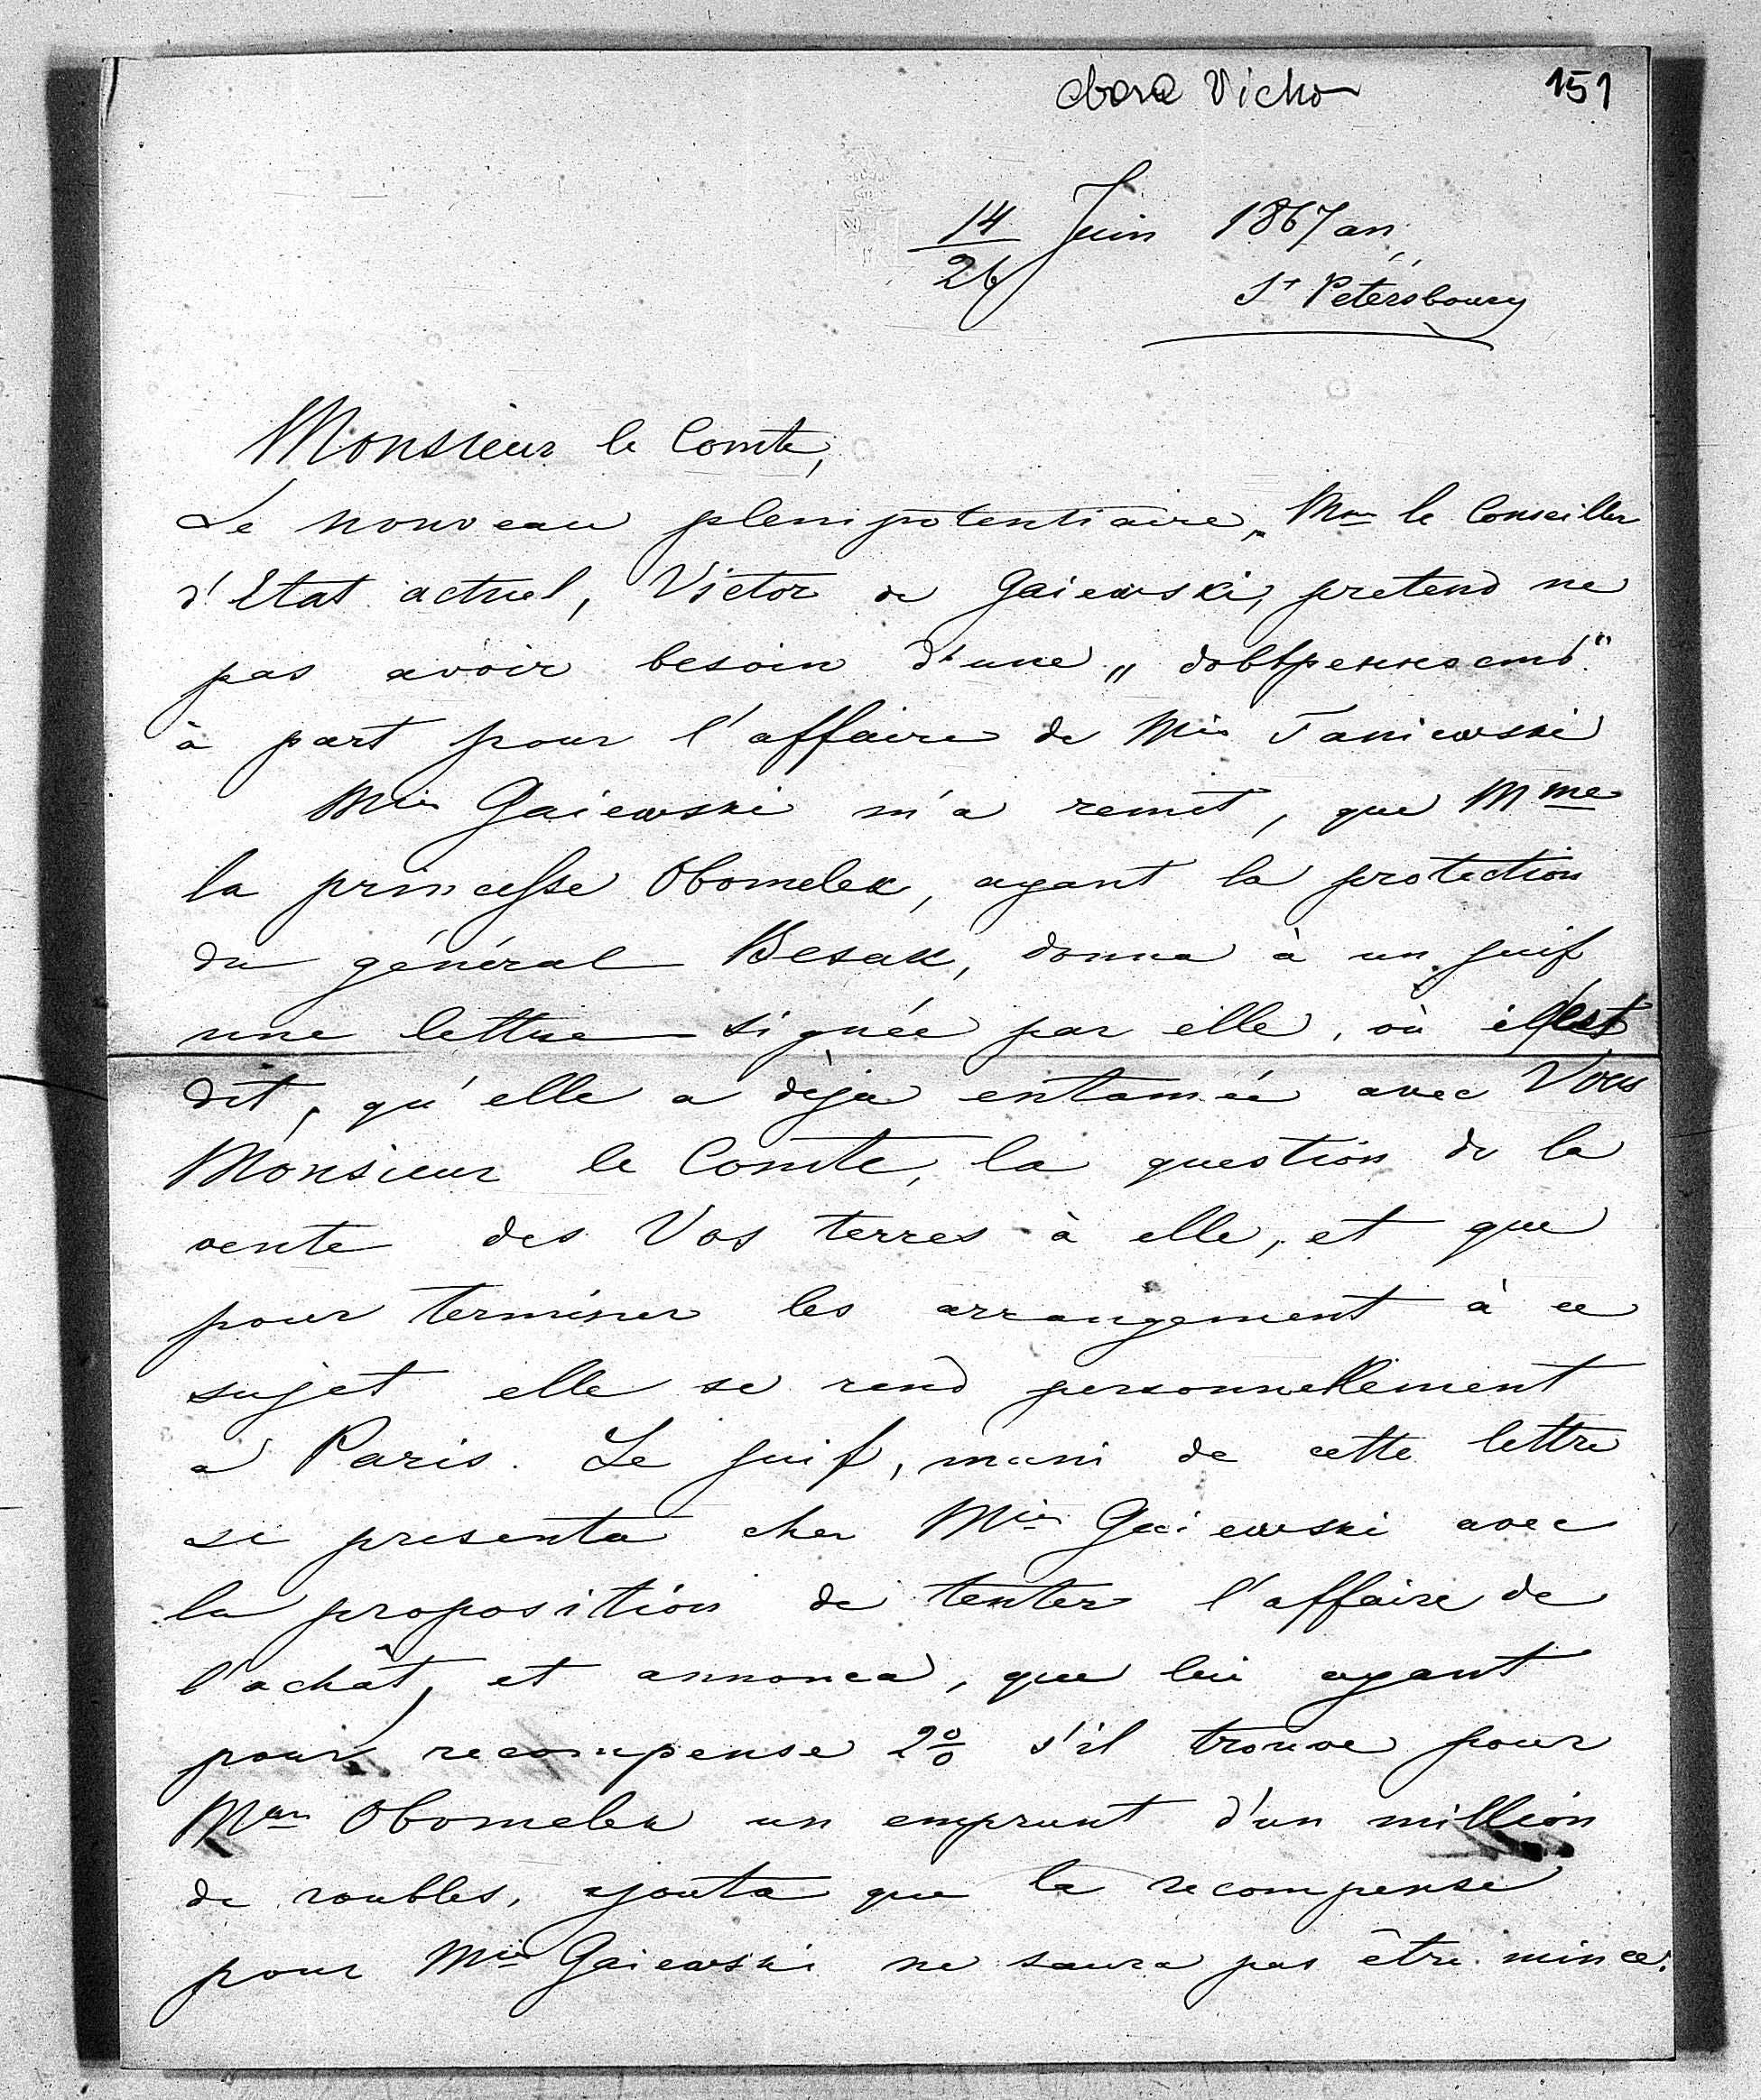 Vicho 151
14/26 Juin 1867 an,
St Pétérsbourg
Monsieur le Comte,
Le nouveau plenipotentiaire, Mr le Conseiller
d'Etat actuel, Victor de Gaiewski, pretend ne
pas avoir besoin d'une „довѣренность“
à part pour l'affaire de Mr Taniewski
Mr Gaiewski m'a remit, que Mme
la princesse Obomelek, ayant la protection
du général Besak, donna à un juif
une lettre signée par elle, où il est
dit, qu'elle a déja entamée avec Vous
Monsieur le Comte, la question de la
vente des Vos terres à elle, et que
pour terminer les arrangement à ce
sujet elle se rend personnellement
a Paris. Le juif, muni de cette lettre
se presenta chez Mr Gaiewski avec
la proposition de tenter l'affaire de
l'achât, et annonca, que lui ayant
pour recompense 2% s'il trouve pour
Obomelek un emprunt d'un million
de roubles, ajouta que la recompense
pour Mr Gaiewski ne saura pas être mince.